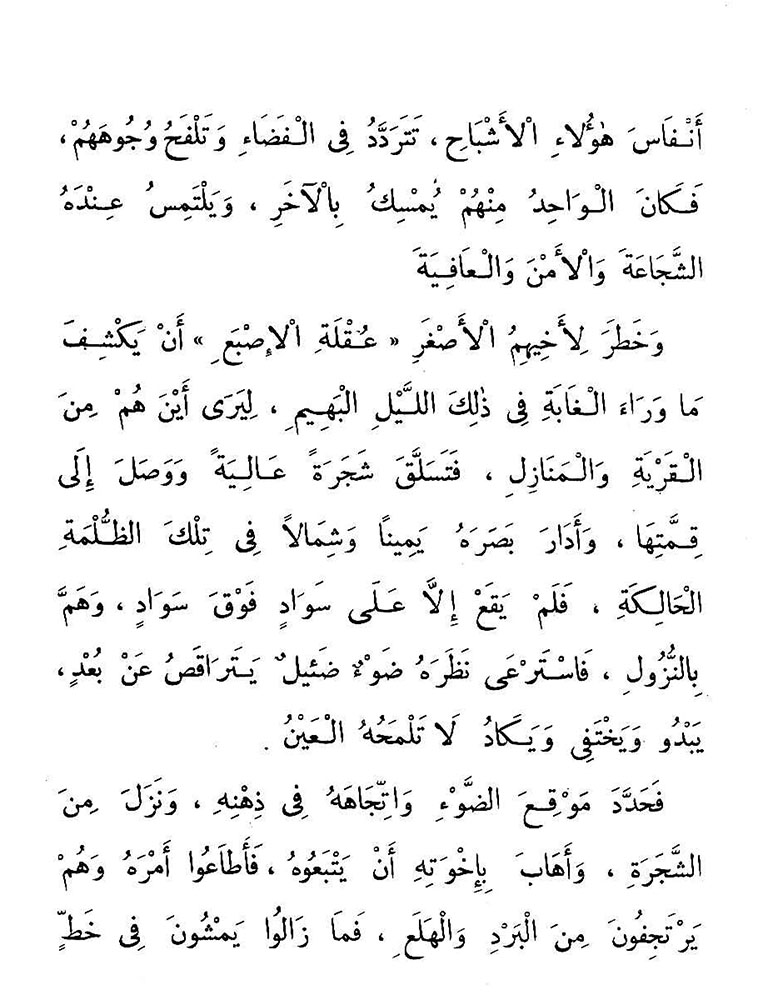 أَنْفَاسَ هٰؤُلَاءِ الْأَشْبَاحِ ، تَتَرَدَّدُ فِى الْفَضَاءِ وَتَلْفَحُ وُجُوهَهُمْ ،
فَكَانَ الْوَاحِدُ مِنْهُمْ يُمْسِكُ بِالْآخَرِ ، وَيَلْتَمِسُ عِنْدَهُ
الشَّجَاعَةَ وَالْأَمْنَ وَالْعَافِيَةَ
وَخَطَرَ لِأَخِيهِمُ الْأَصْغَرِ « عُقْلَةِ الْإِصْبَعِ » أَنْ يَكْشِفَ
مَا وَرَاءَ الْغَابَةِ فِى ذٰلِكَ اللَّيْلِ الْبَهِيمِ ، لِيَرَى أَيْنَ هُمْ مِنَ
الْقَرْيَةِ وَالْمَنَازِلِ ، فَتَسَلَّقَ شَجَرَةً عَالِيَةً وَوَصَلَ إِلَى
قِمَّتِهَا ، وَأَدَارَ بَصَرَهُ يَمِينًا وَشِمَالاً فِى تِلْكَ الظُّلْمَةِ
الْحَالِكَةِ ، فَلَمْ يَقَعْ إِلَّا عَلَى سَوَادٍ فَوْقَ سَوَادٍ ، وَهَمَّ
بِالنُّزُولِ ، فَاسْتَرْعَى نَظَرَهُ ضَوْءٌ ضَئِيلٌ يَتَرَاقَصُ عَنْ بُعْدٍ ،
يَبْدُو وَيَخْتَفِى وَيَكَادُ لَا تَلْمَحُهُ الْعَيْنُ .
فَحَدَّدَ مَوْقِعَ الضَّوْءِ وَاتِّجَاهَهُ فِى ذِهْنِهِ ، وَنَزَلَ مِنَ
الشَّجَرَةِ ، وَأَهَابَ بِإِخْوَتِهِ أَنْ يَتْبَعُوهُ ، فَأَطَاعُوا أَمْرَهُ وَهُمْ
يَرْتَجِفُونَ مِنَ الْبَرْدِ وَالْهَلَعِ ، فَمَا زَالُوا يَمْشُونَ فِى خَطٍّ